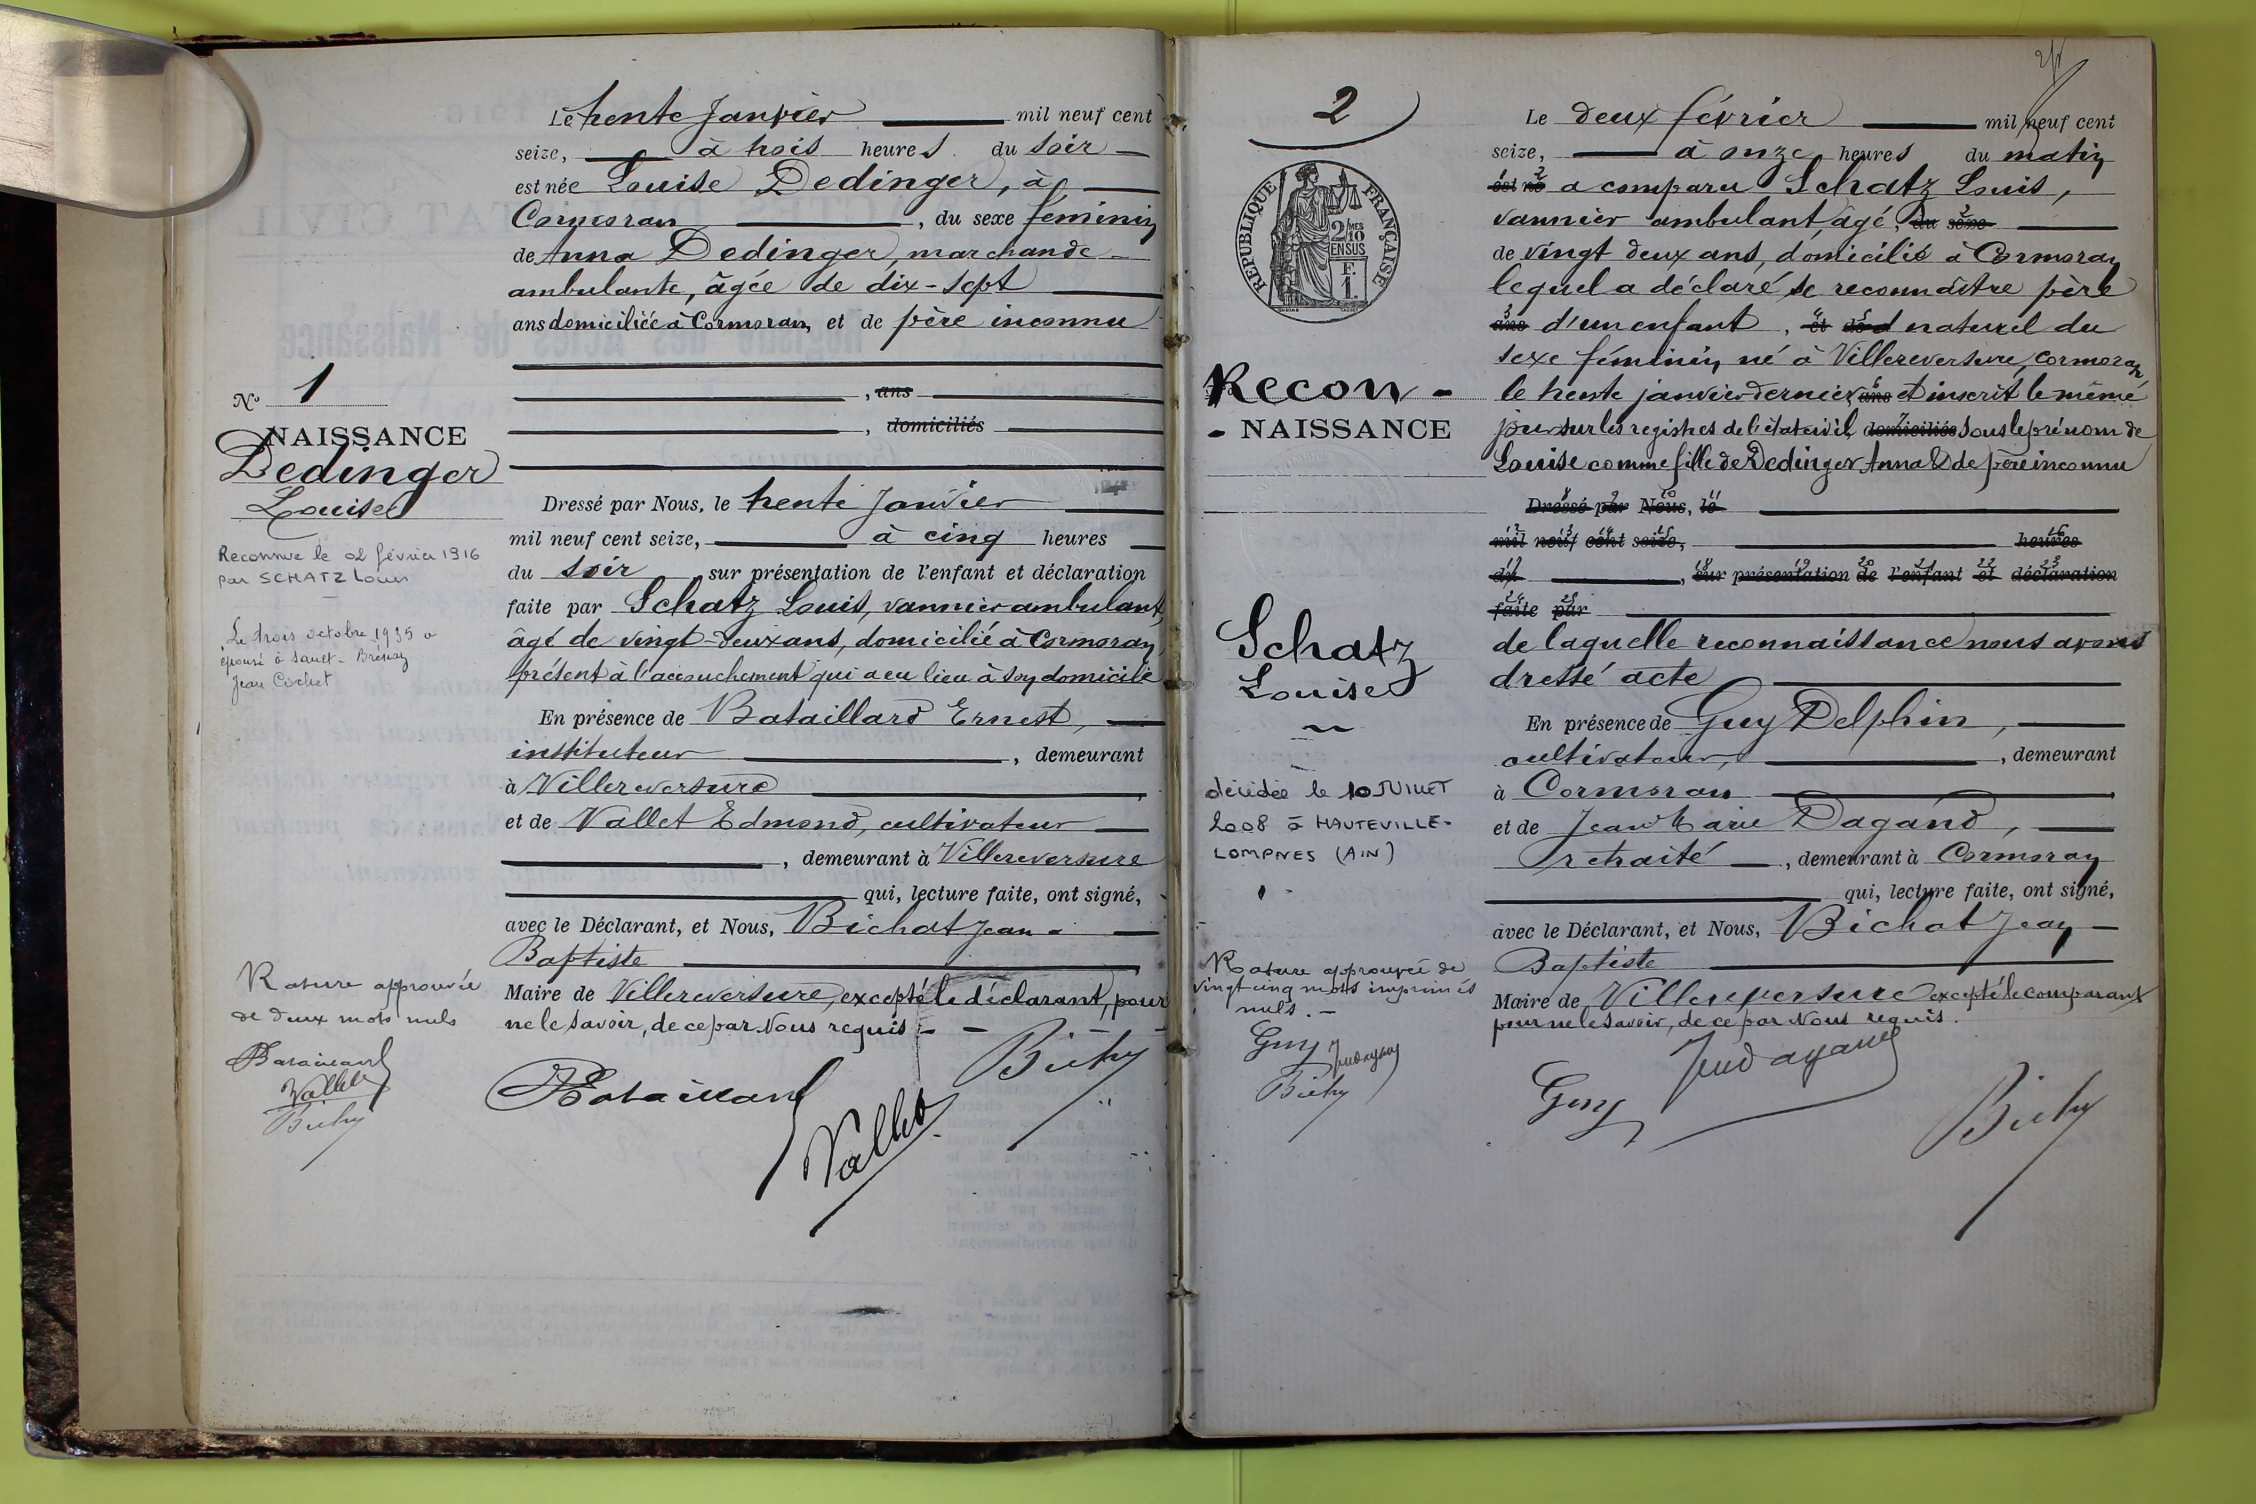 Le trente Janvier mil neuf cent
seize, à trois heures du soir
est née Louise Dedinger, à
Cormoran, du sexe féminin
de Anna Dedinger, marchande
ambulante, âgée de dix-sept
ans domiciliée à Cormoran, et de père inconnu
, ans
, domiciliés
Dressé par Nous, le trente Janvier
mil neuf cent seize, à cinq heures
du soir, sur présentation de l'enfant et déclaration
faite par Schatz Louis, vannier ambulant,
âgé de vingt-deux ans, domicilié à Cormoran,
présent à l'accouchement qui a eu lieu à son domicile
En présence de Bataillard Ernest,
instituteur, demeurant
à Villereversure,
et de Vallet Edmond, cultivateur
, demeurant à Villereversure
qui, lecture faite, ont signé,
avec le Déclarant, et Nous, Bichat Jean-
Baptiste
Maire de Villereversure, excepté le déclarant, pour
ne le savoir, de ce par Nous requis.
Bataillard
Vallet
Bichat
No 1
NAISSANCE
Dedinger
Louise
Reconnue le 02 février 1916
par SCHATZ Louis
Le trois octobre 1935 a
épousé à Sault-Brénaz
Jean Cochet
Rature approuvée
de deux mots nuls
Bataillard
Vallet
Bichat
2
REPUBLIQUE FRANÇAISE
2/MES
10
EN SUS
F.
1.
Recon-
- NAISSANCE
Schatz
Louise
décédée le 10 JUILLET
2008 à HAUTEVILLE-
LOMPNES (AIN)
Rature approuvée de
vingt cinq mots imprimés
nuls.
Guy
Bichat
Le deux février mil neuf cent
seize, à onze heures du matin
est né a comparu Schatz Louis,
vannier ambulant âgé, du sexe
de vingt deux ans, domicilié à Cormoran
lequel a déclaré se reconnaître père
ans d'un enfant, et de naturel du
sexe féminin né à Villereversure, Cormoran,
le trente janvier dernier, ans et inscrit le même
jour sur les registres de l'état civil, domiciliés sous le prénom de
Louise comme fille de Dedinger Anna & de père inconnu
Dressé par Nous, le
mil neuf cent seize, heures
du, sur présentation de l'enfant et déclaration
faite par
de laquelle reconnaissance nous avons
dressé acte
En présence de Guy Delphin,
cultivateur, demeurant
à Cormoran
et de Jean Marie Dagand,
retraité, demeurant à Cormoran
qui, lecture faite, ont signé,
avec le Déclarant, et Nous, Bichat Jean
Baptiste
Maire de Villereversure excepté le comparant
pour ne le savoir, de ce par Nous requis.
Guy
Bichat